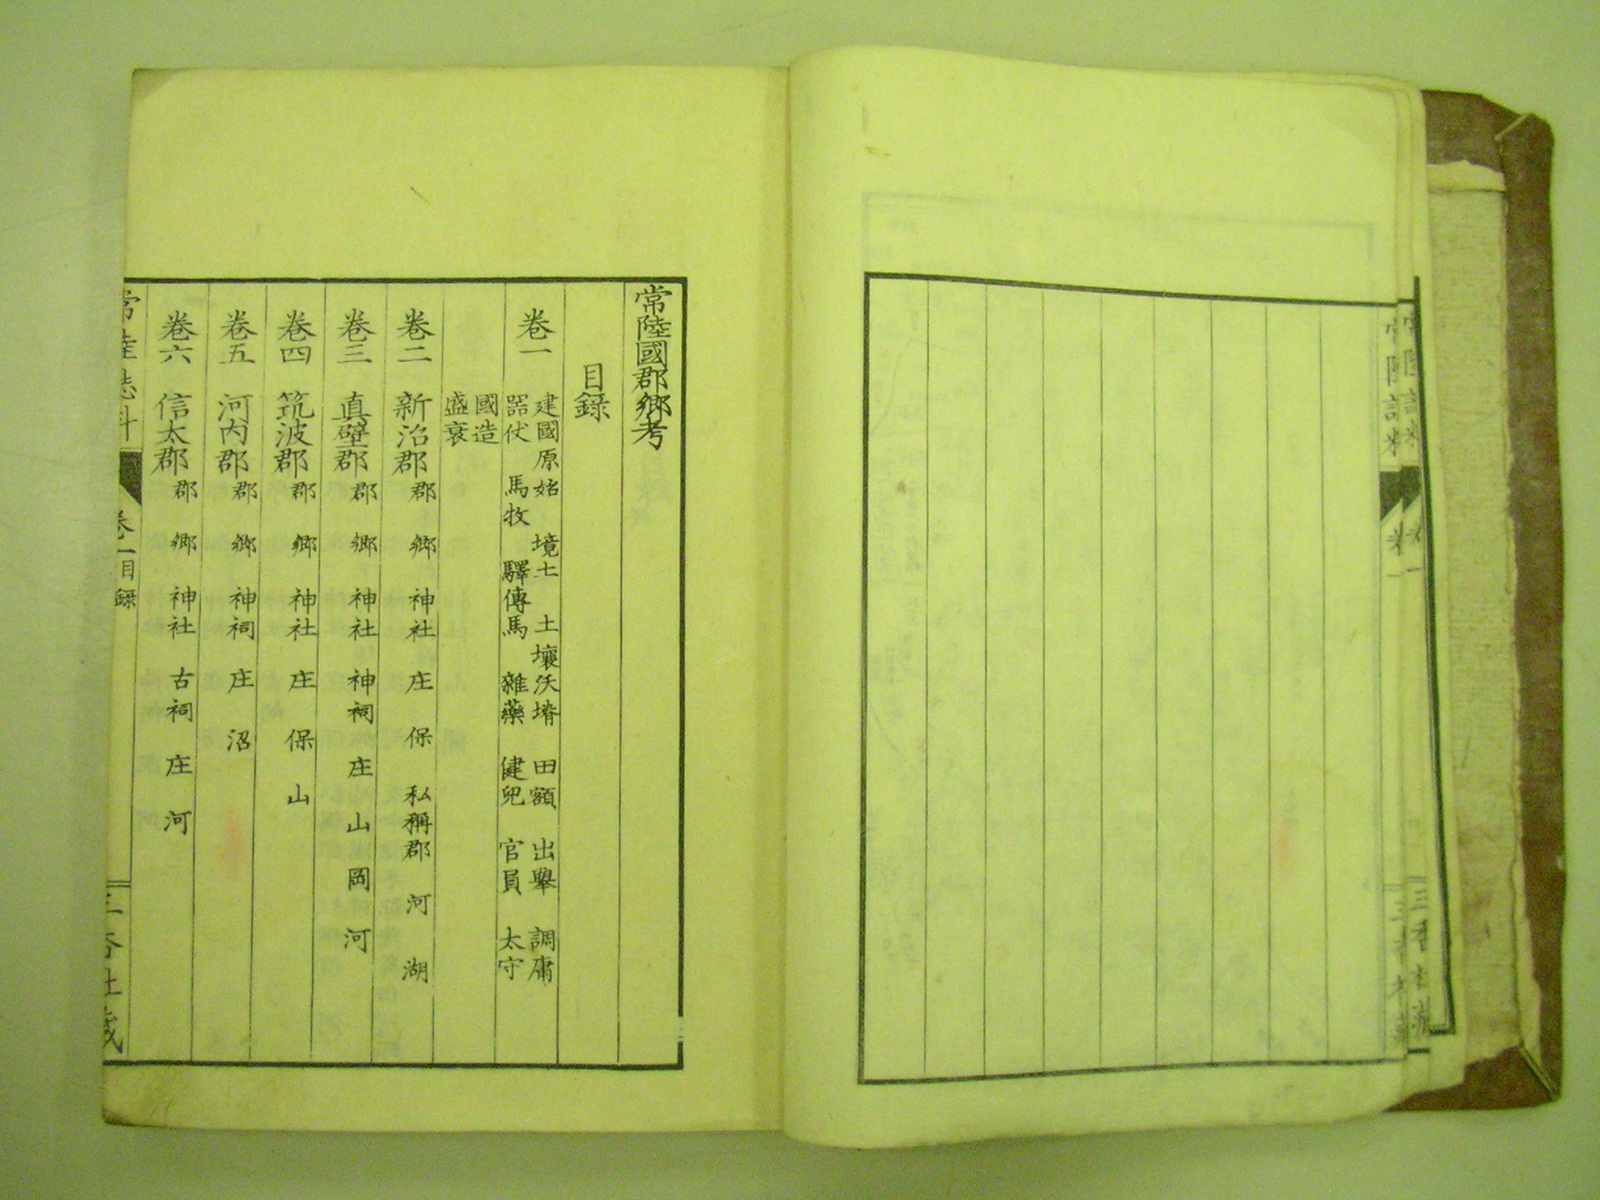 常陸國郡鄉考
目錄
卷一 建國原始 境土 土壤沃塉 田額 出舉 調庸
器仗 馬牧 驛傳馬 雜藥 健兒 官員 太守
國造
盛衰
卷二 新治郡 郡 鄉 神社 庄 保 私稱郡 河 湖
卷三 真壁郡 郡 鄉 神社 神祠 庄 山 岡 河
卷四 筑波郡 郡 鄉 神社 庄 保 山
卷五 河內郡 郡 鄉 神祠 庄 沼
卷六 信太郡 郡 鄉 神社 古祠 庄 河
常陸誌料 卷一目錄 三香社藏